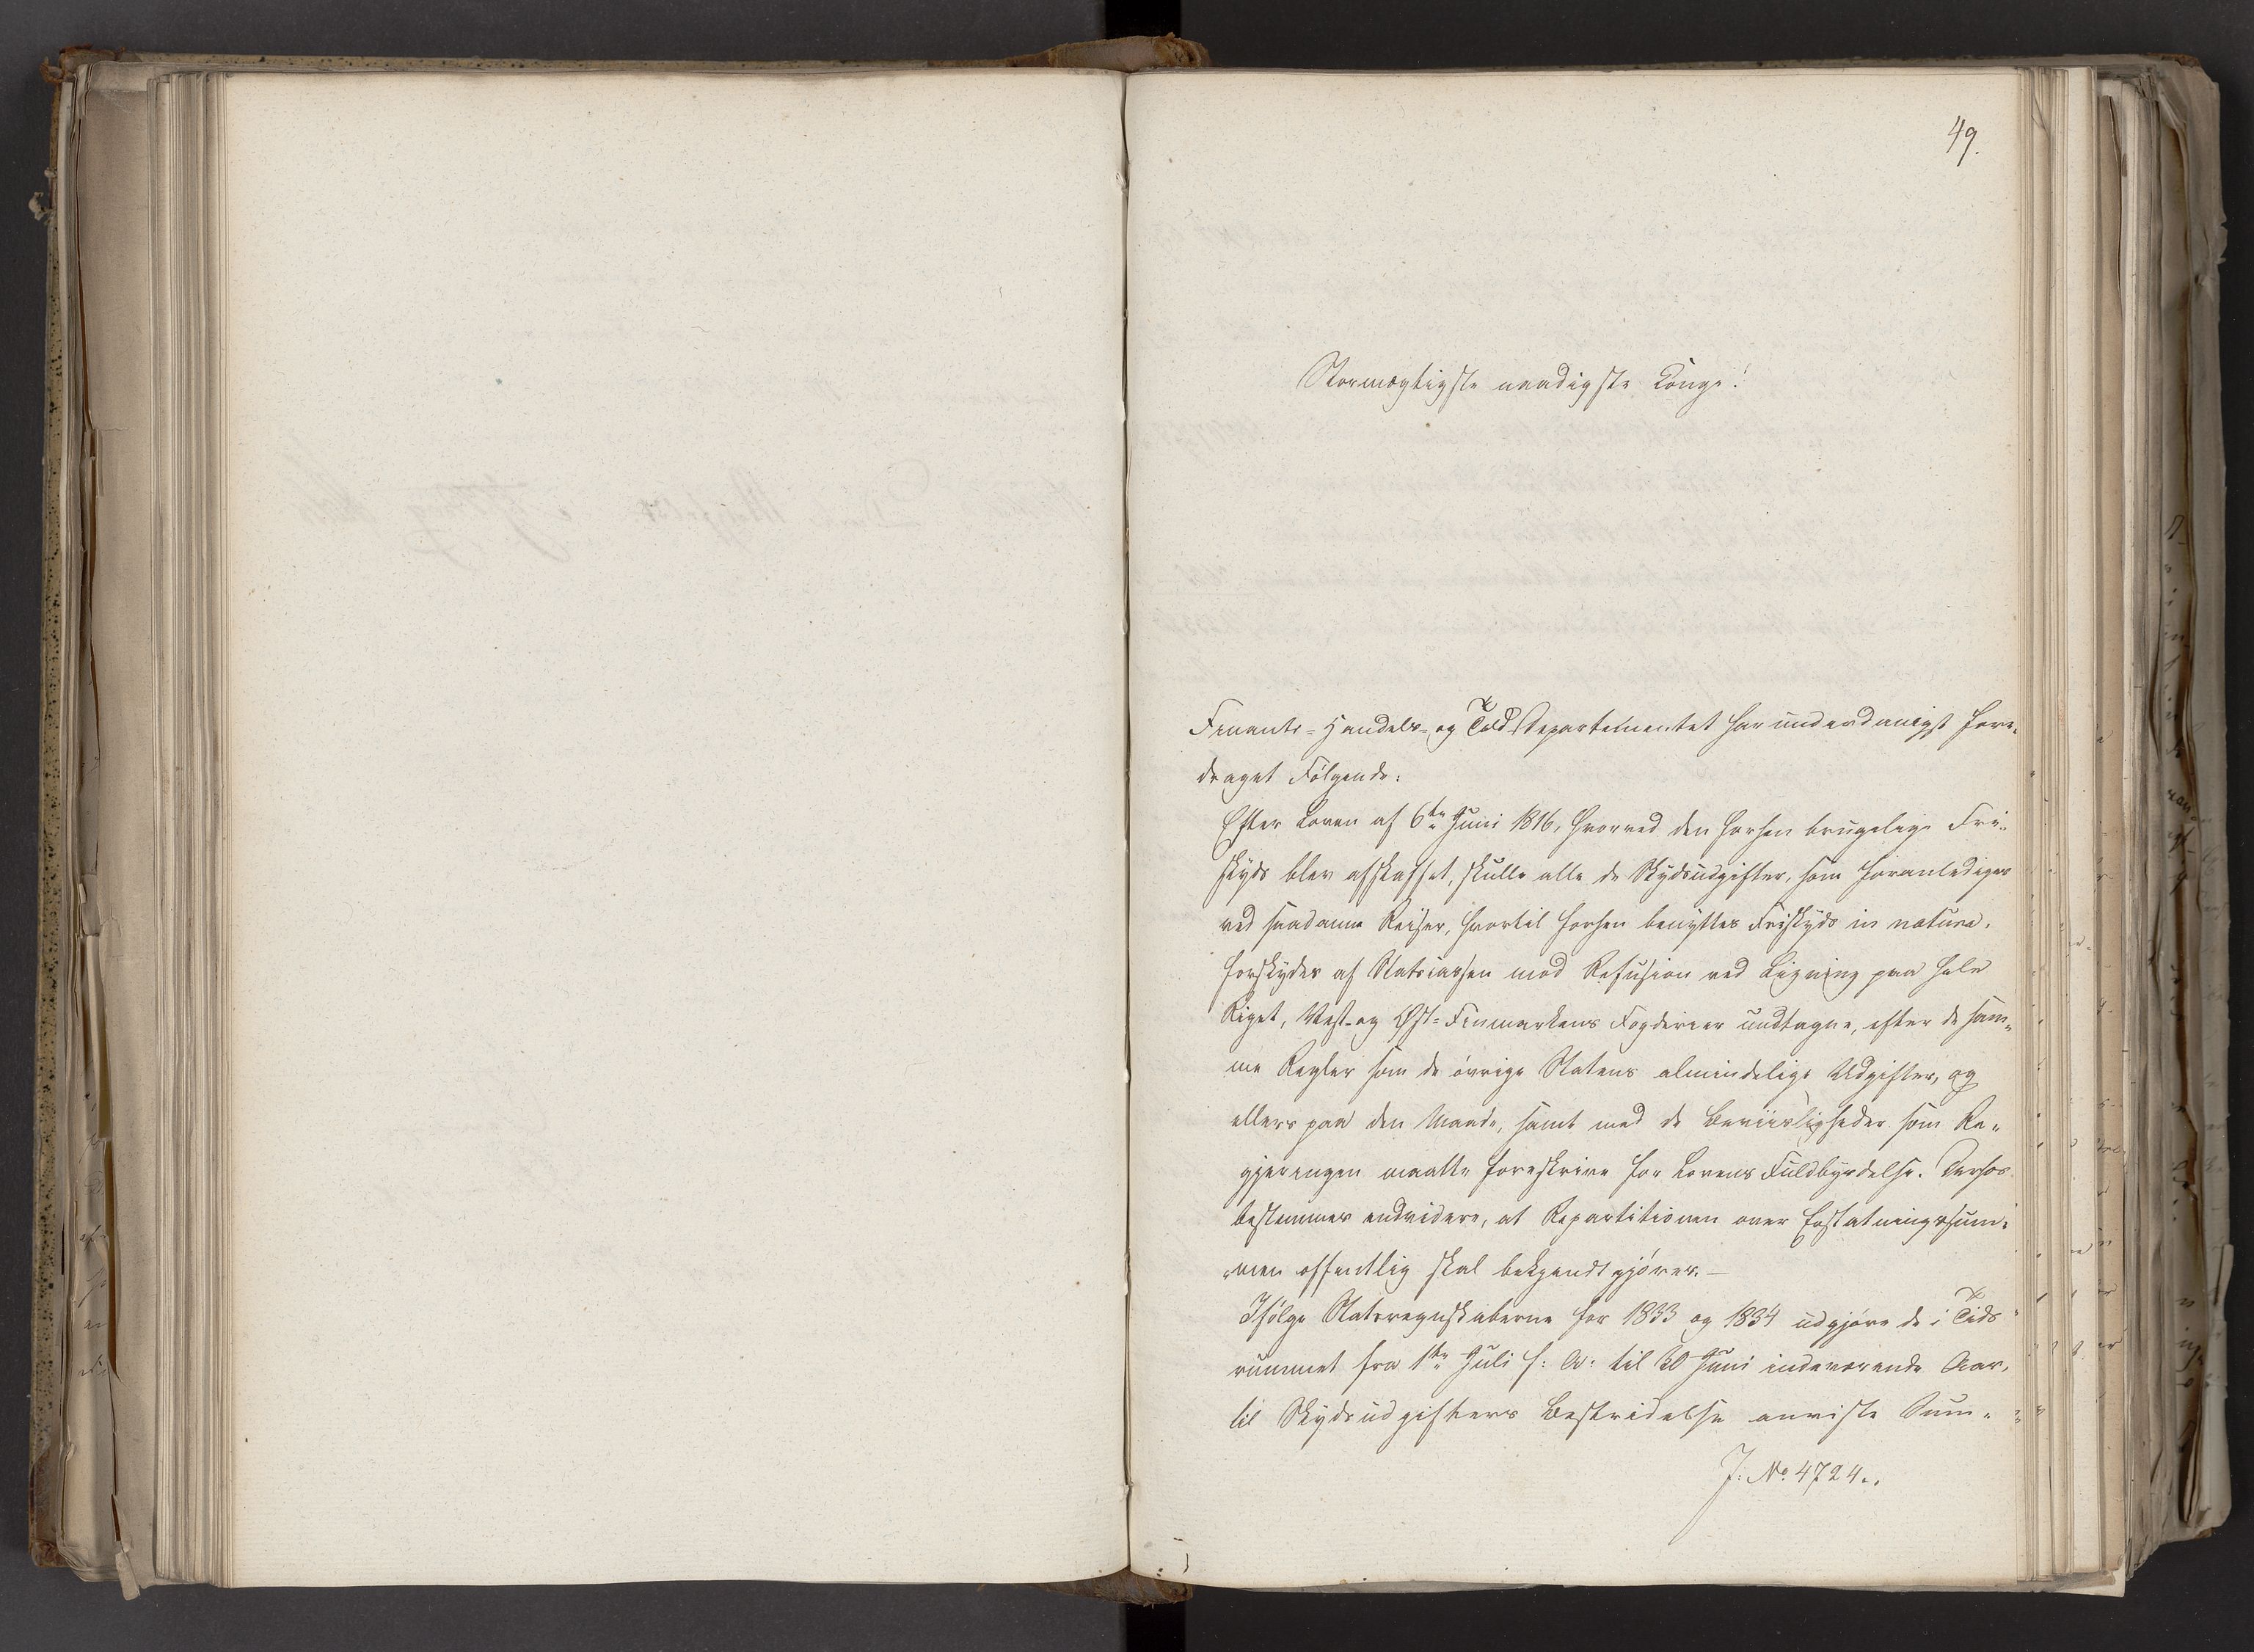 49.
Stormægtigste naadigste Konge!
Finants- Handels- og Told-Departementet har underdanigst fore-
draget Følgende:
Efter Loven af 6te Juni 1816, hvorved den forhen brugelige Fri-
skyds blev afskaffet, skulle alle de Skydsudgifter, som foranlediges
ved saadanne Reiser, hvortil forhen benyttes Friskyds in natura,
forskydes af Statscassen mod Refusion ved Ligning paa hele
Riget, Vest- og Øst-Finmarkens Fogderier undtagne, efter de sam-
me Regler som de øvrige Statens almindelige Udgifter, og
ellers paa den Maade, samt med de Beviisligheder som Re-
gjeringen maatte foreskrive for Lovens Fuldbyrdelse. Derhos
bestemmes endvidere, at Repartitionen over Erstatningssum-
men offentlig skal bekjendtgjøres.—
Ifølge Statsregnskaberne for 1833 og 1834 udgjøre de i Tids-
rummet fra 1te Juli f: A: til 30 Juni indeværende Aar,
til Skydsudgifters Bestridelse anviste Sum-
J: No. 4724.